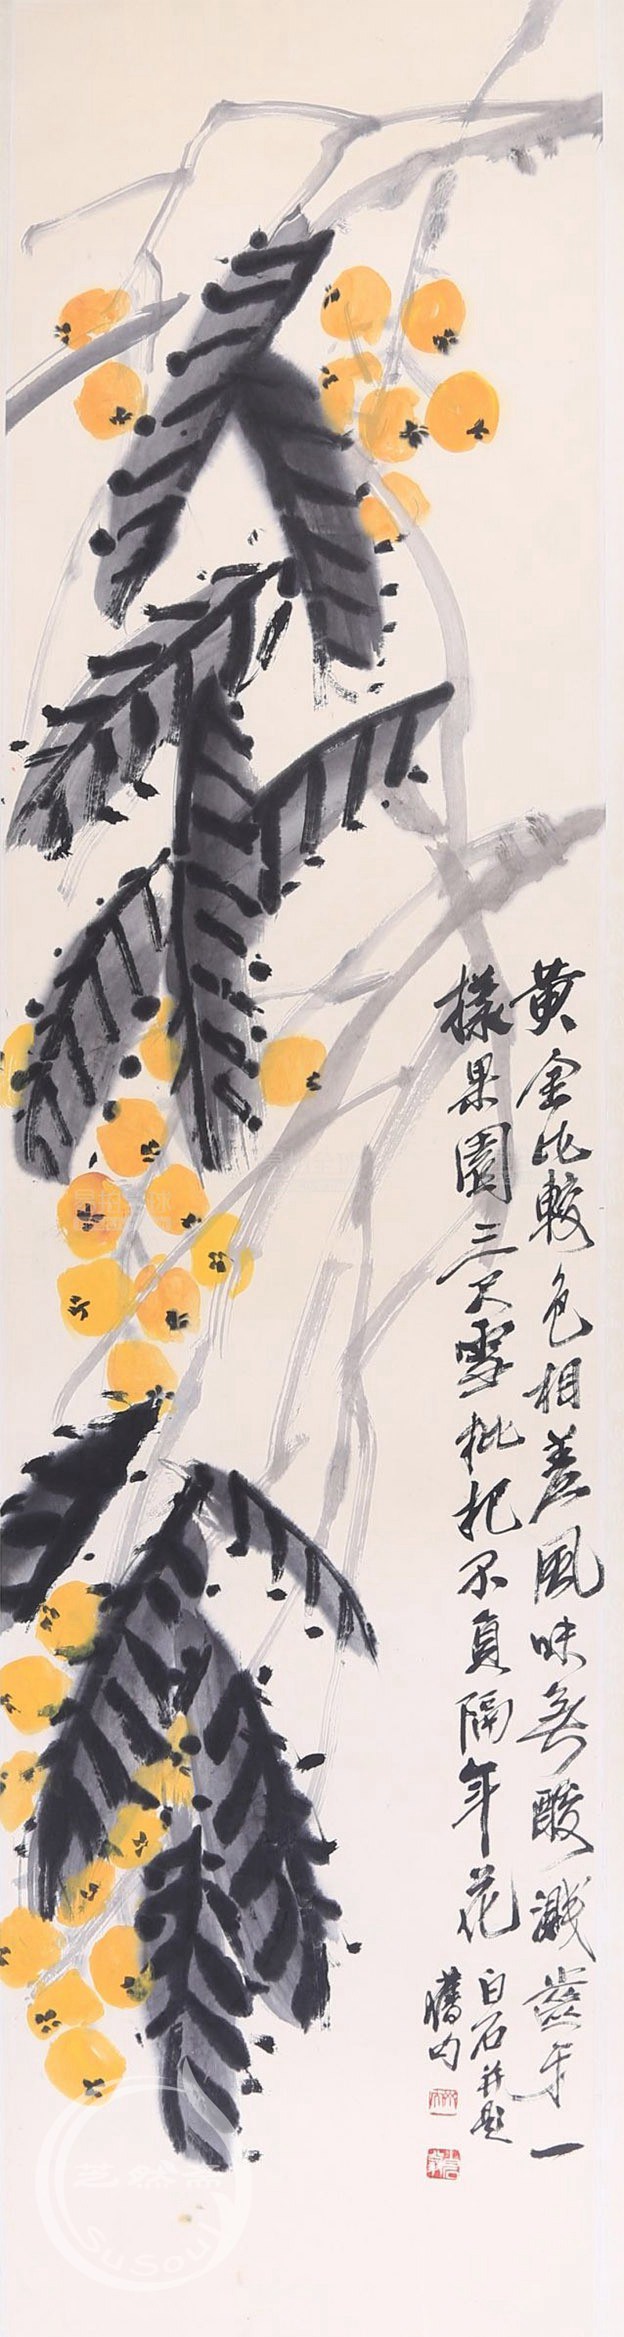 黄金比較色相差風味無酸濺齒牙一
樣果園三尺雪枇杷不負隔年花
白石并題
舊句
艺然斋
SuSoul